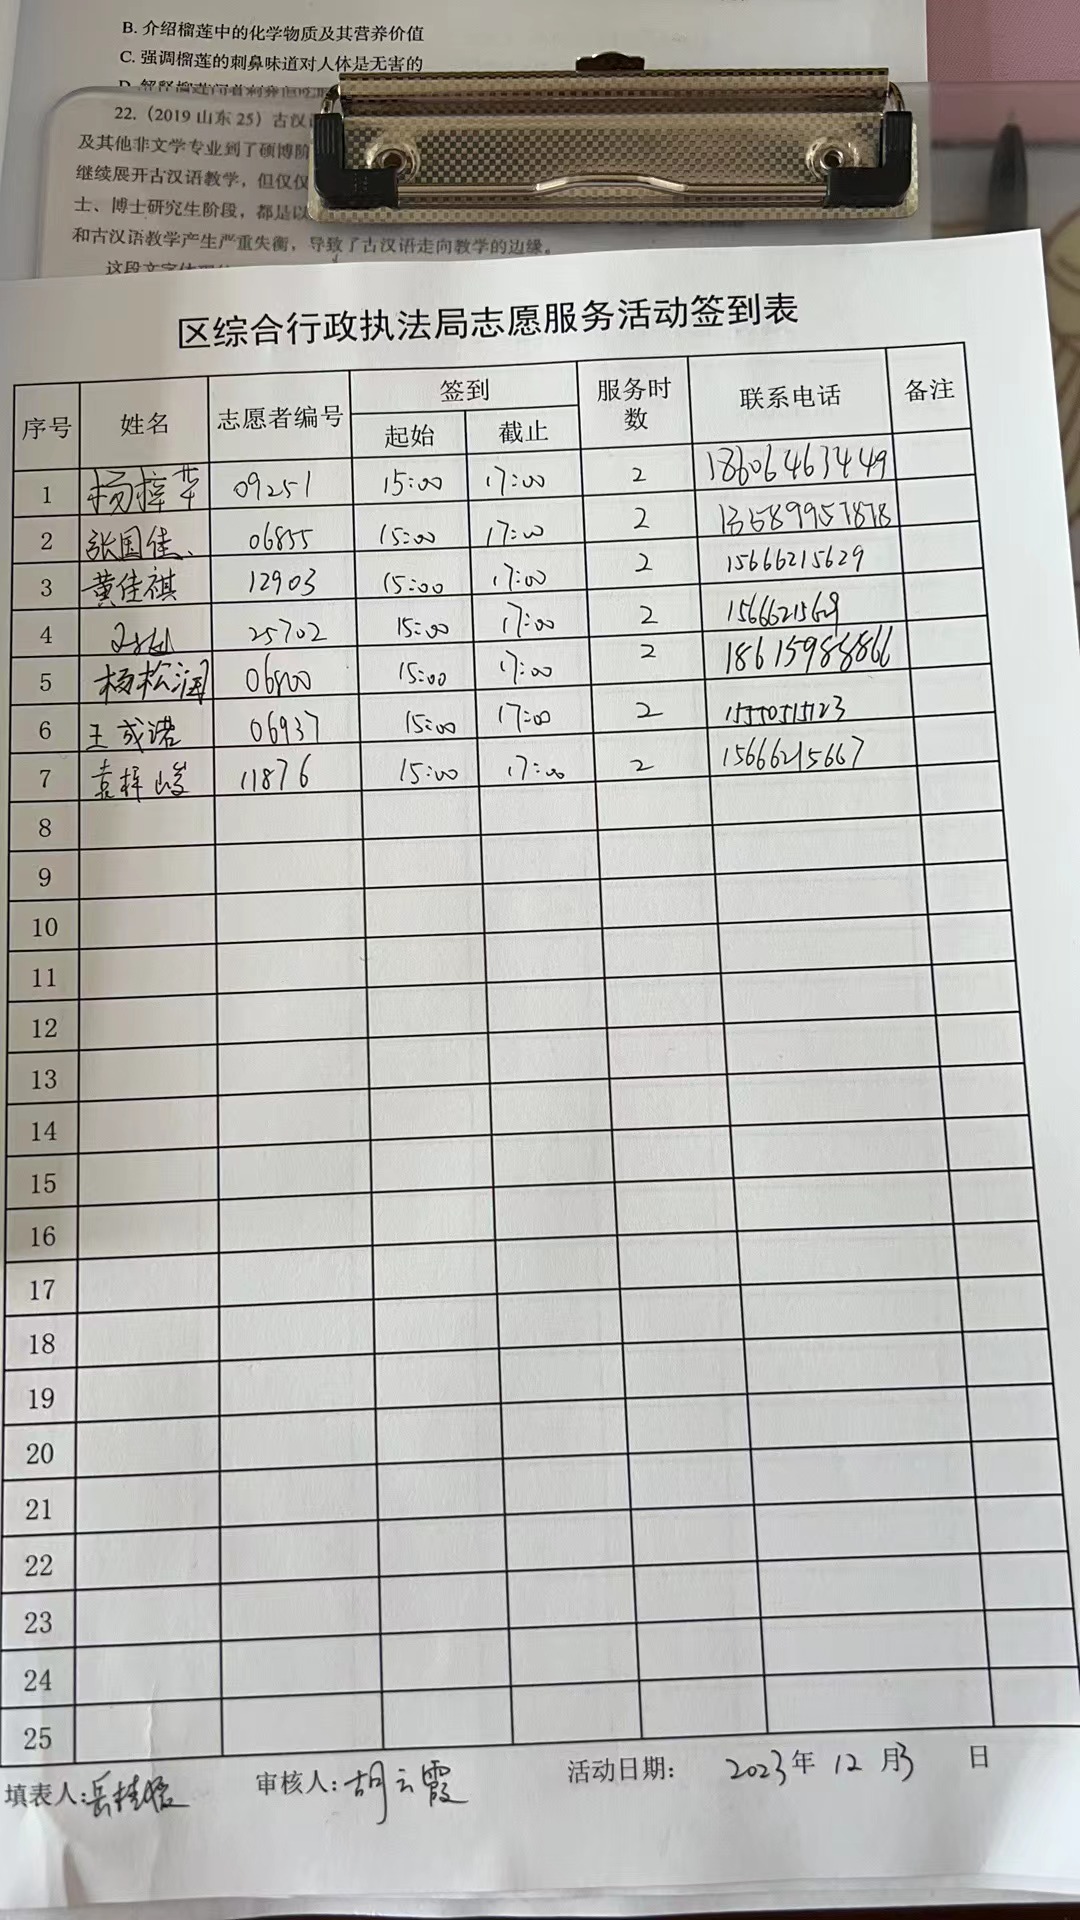 B. 介绍榴莲中的化学物质及其营养价值
C. 强调榴莲的刺鼻味道对人体是无害的
22.（2019 山东 25）古汉
及其他非文学专业到了硕博阶
继续展开古汉语教学，但仅仅
士、博士研究生阶段，都是以
和古汉语教学产生严重失衡，导致了古汉语走向教学的边缘。
区综合行政执法局志愿服务活动签到表
序号 姓名 志愿者编号 签到 服务时数 联系电话 备注
起始 截止
1 杨梓苹 09251 15:00 17:00 2 18606463449
2 张国佳 06855 15:00 17:00 2 13589957878
3 黄佳祺 12903 15:00 17:00 2 15666215629
4 25702 15:00 17:00 2 1566621569
5 杨松润 06800 15:00 17:00 2 18615988866
6 王成诺 06937 15:00 17:00 2 15550515123
7 袁梓峻 11876 15:00 17:00 2 15666215667
8
9
10
11
12
13
14
15
16
17
18
19
20
21
22
23
24
25
填表人: 审核人: 胡云霞 活动日期： 2023 年 12 月 3 日